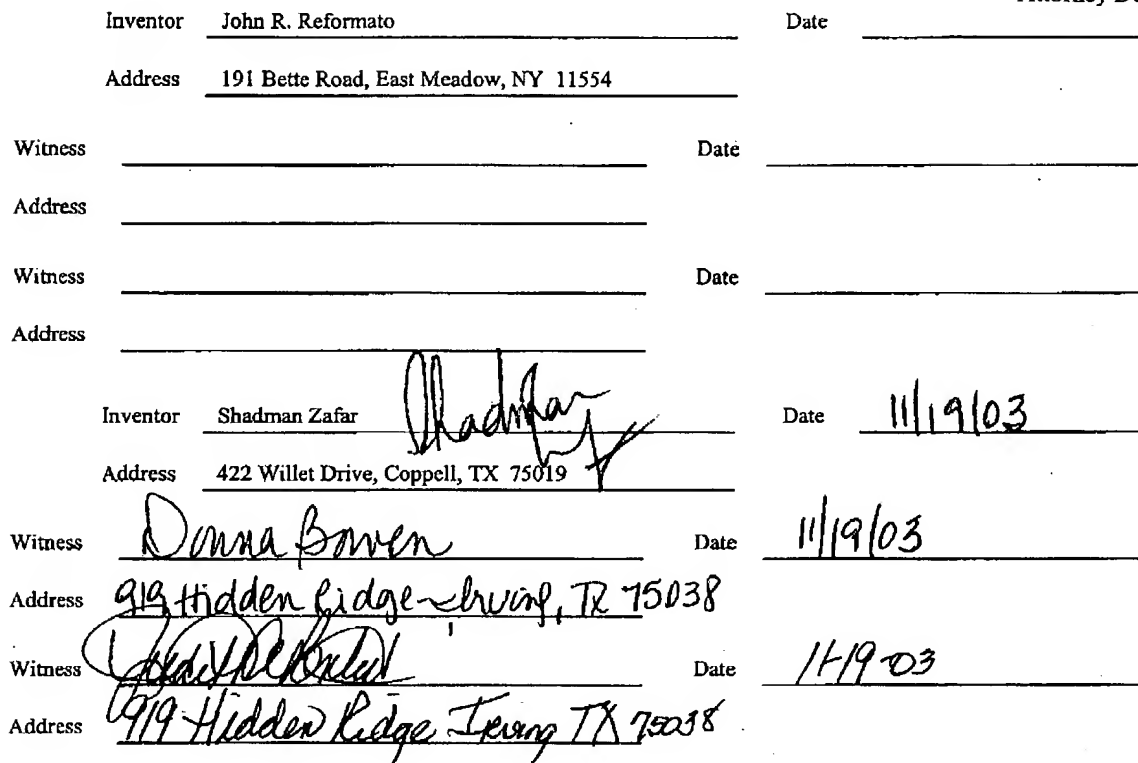 Inventor John R. Reformato Date
Address 191 Bette Road, East Meadow, NY 11554
Witness Date
Address
Witness Date
Address
Inventor Shadman Zafar Date 11/19/03
Address 422 Willet Drive, Coppell, TX 75019
Witness Donna Bowen Date 11/19/03
Address 919 Hidden Ridge Irving, TX 75038
Witness Date 11-19-03
Address 919 Hidden Ridge Irving TX 75038